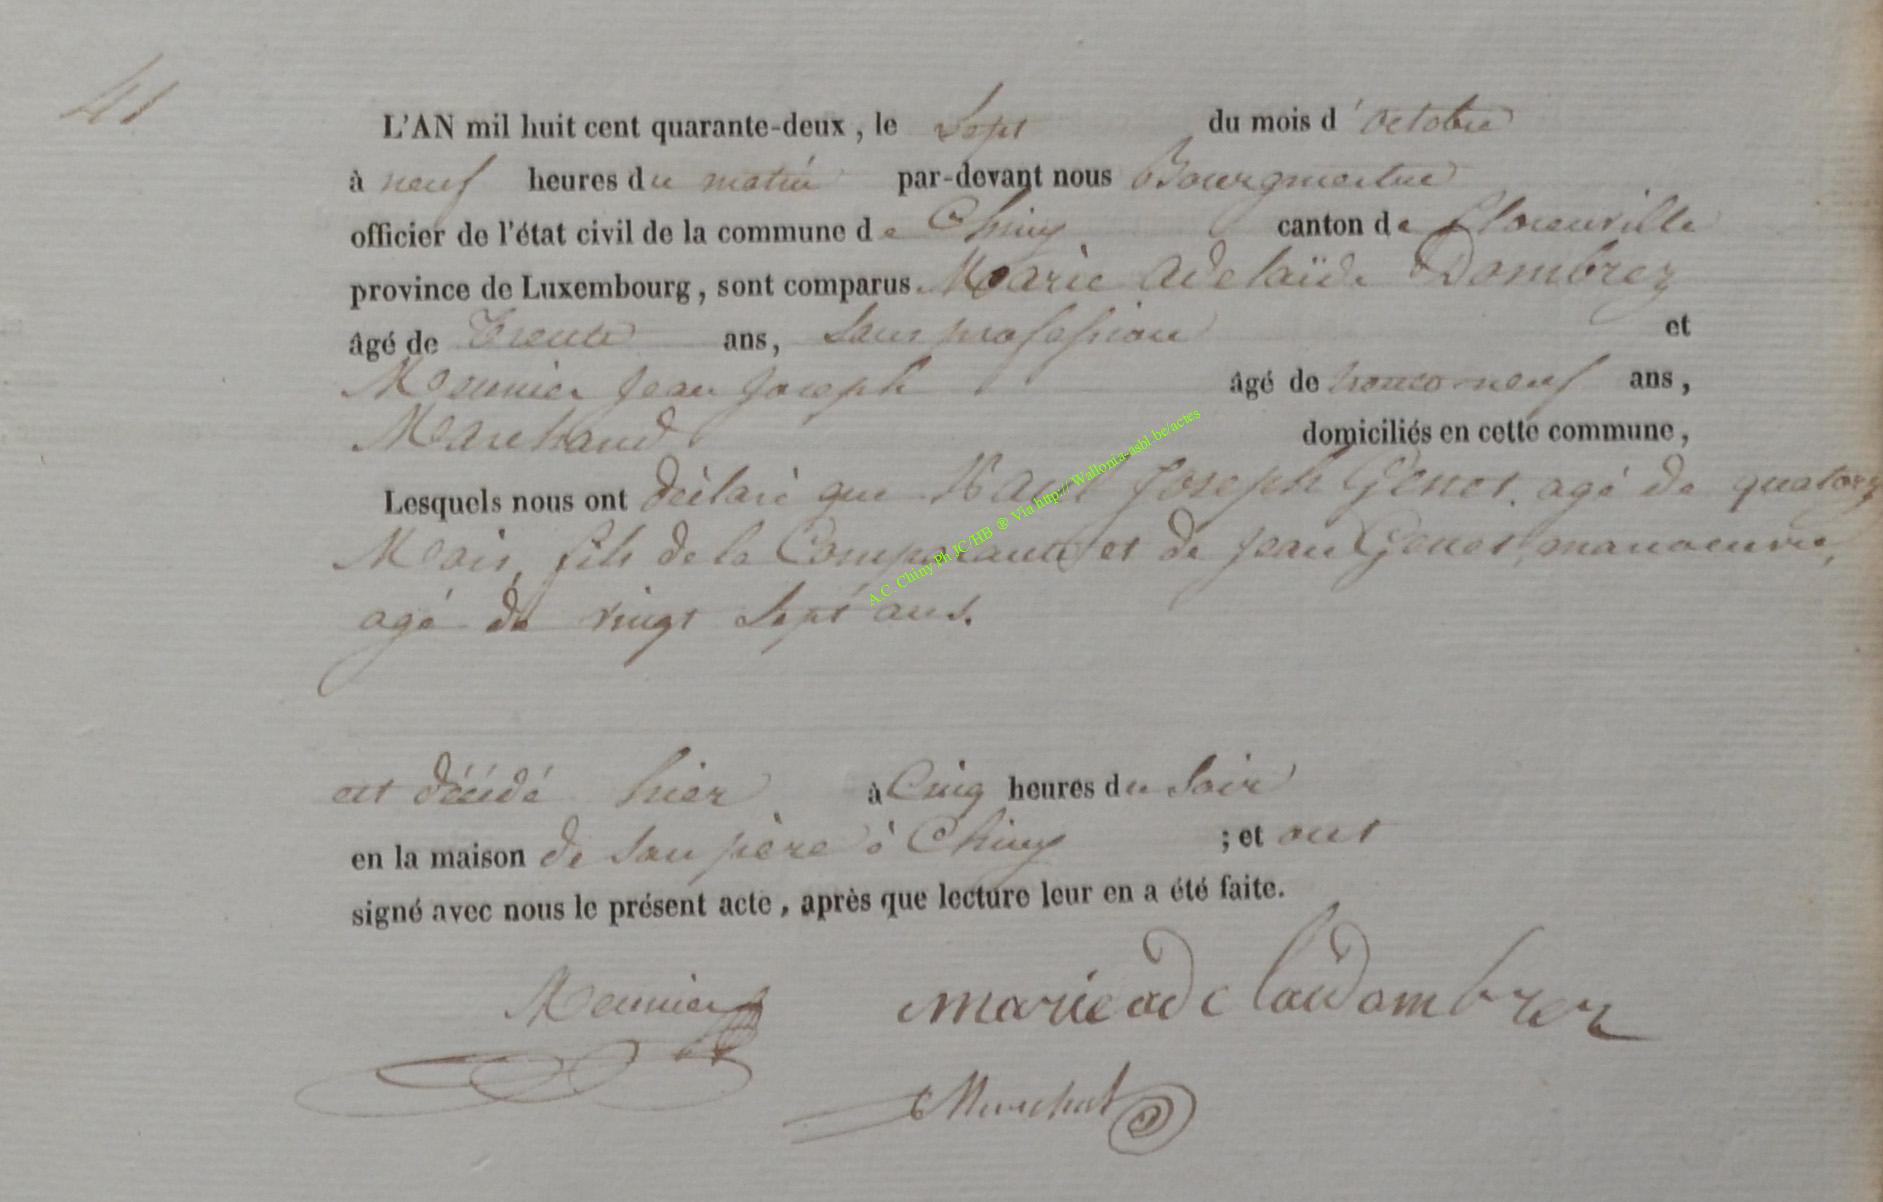 41
L'AN mil huit cent quarante-deux, le Sept du mois d'octobre
à neuf heures du matin par-devant nous Bourgmestre
officier de l'état civil de la commune de Chiny canton de Florenville
province de Luxembourg, sont comparus Marie Adelaïde Dombrez
âgé de Trente ans, Sans profession et
Meunier Jean Joseph âgé de trente neuf ans,
Marchand domiciliés en cette commune,
Lesquels nous ont déclaré que Joseph Genet, agé de quatorze
Mois, fils de la Comparante et de Jean Genet, manoeuvre,
agé de vingt Sept ans.
est décédé hier à Cinq heures du Soir
en la maison de son père à Chiny ; et ont
signé avec nous le présent acte, après que lecture leur en a été faite.
Meunier marie adelaidombrez
Marechal
A.C. Chiny Ph JC/HB ® Via http://Wallonia-asbl.be/actes